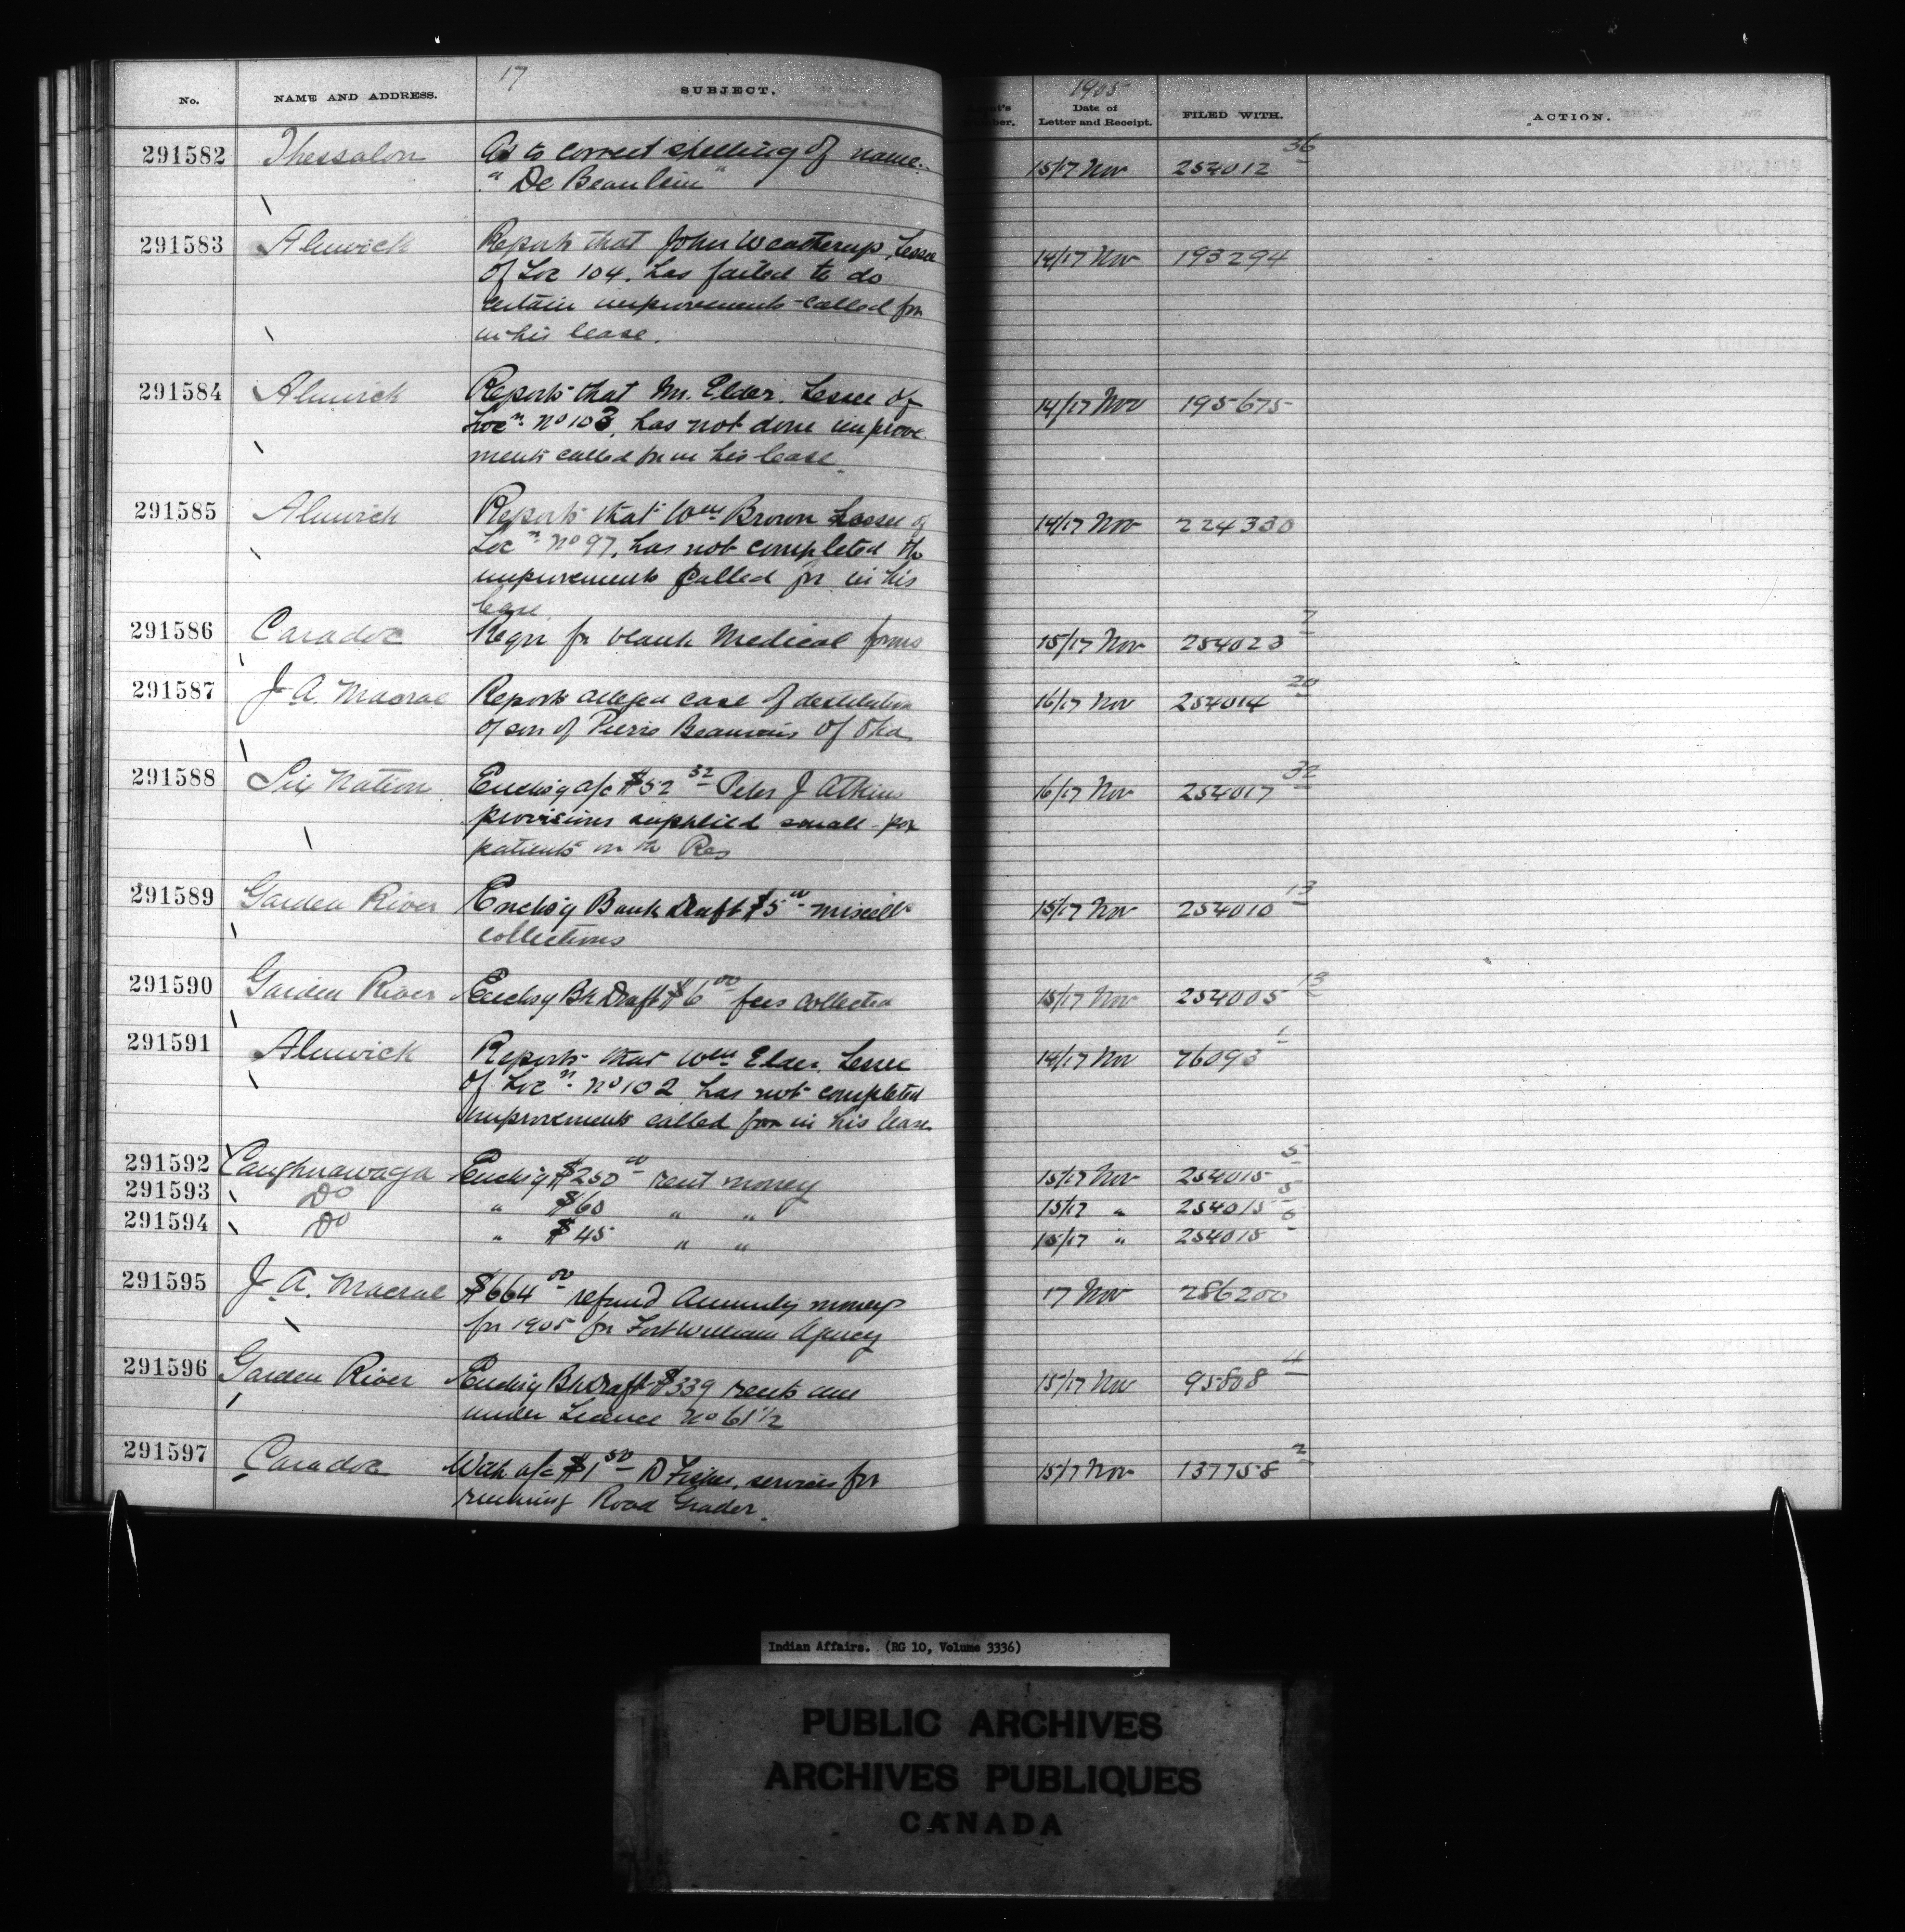 17
1905
No. NAME AND ADDRESS. SUBJECT. Date of Letter and Receipt. FILED WITH. ACTION.
291582 Thessalon As to correct spelling of name 15/17 Nov 254012 36
"De Beaulieu"
291583 Alnwick Reports that John Weatherup, Lessee 14/17 Nov 193294
of Loc 104, has failed to do
certain improvements called for
in his lease.
291584 Alnwick Reports that Mr. Elder, Lessee of 14/17 Nov 195675
Locn. No 103, has not done improve
ments called for in his lease.
291585 Alnwick Reports that Wm Brown Lessee of 14/17 Nov 224330
Locn. No 97, has not completed the
improvements called for in his
lease
291586 Caradoc Reqr for blank Medical forms 15/17 Nov 254023 7
291587 J. A. Macrae Reports alleged case of destitution 16/17 Nov 254014 20
of son of Pierre Beauvais of Oka
291588 Six Nation Enclos'g a/c $52 32 Peter J Atkins 16/17 Nov 254017 32
provisions supplied small-pox
patients on the Res
291589 Garden River Enclos'g Bank Draft $5 00 miscells 15/17 Nov 254010 13
collections
291590 Garden River Enclosg Bk Draft $6 00 fees collected 15/17 Nov 254005 13
291591 Alnwick Reports that Wm Elder, Lessee 14/17 Nov 76093 1
of Locn. No 102 has not completed
improvements called for in his lease
291592 Caughnawaga Enclos'g $250 00 rent money 15/17 Nov 254015 5
291593 Do " $60 " " 15/17 " 254015 5
291594 Do " $45 " " 15/17 " 254015
291595 J. A. Macrae $664 00 refund Annuity money 17 Nov 286200
for 1905 for Fort William Agency
291596 Garden River Enclos'g Bk Draft $339 rents due 15/17 Nov 95808 4
under Licence No 61 1/2
291597 Caradoc With a/c $1 50 D Fisher, services for 15/17 Nov 137758 2
running Road Grader.
Indian Affairs. (RG 10, Volume 3336)
PUBLIC ARCHIVES
ARCHIVES PUBLIQUES
CANADA